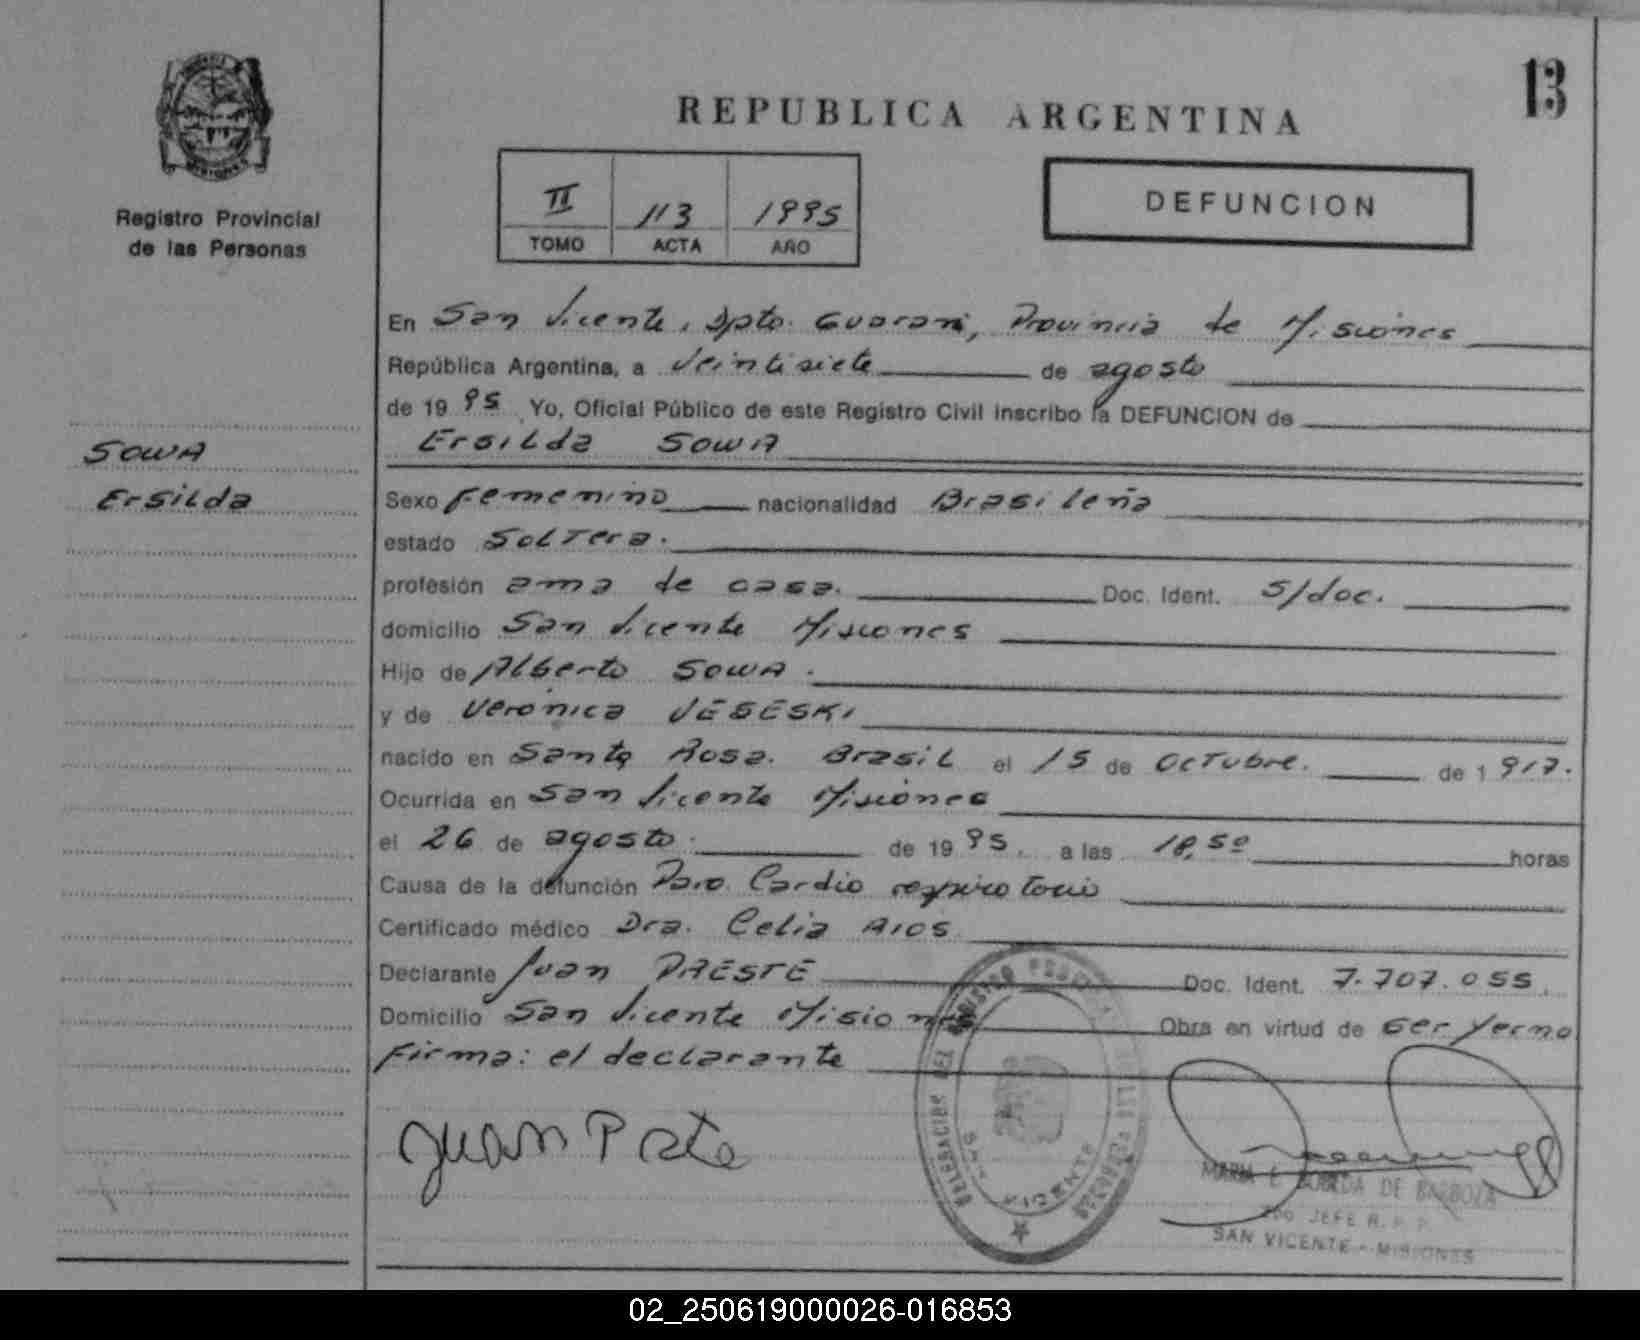 13
REPUBLICA ARGENTINA
Registro Provincial
de las Personas
II 113 1995
TOMO ACTA AÑO
DEFUNCION
En San Vicente, Dpto. Guarani, Provincia de Misiones
República Argentina, a veintisiete de agosto
de 1995 Yo, Oficial Público de este Registro Civil inscribo la DEFUNCION de
Ersilda SOWA
SOWA
Ersilda
Sexo Femenino nacionalidad Brasileña
estado Soltera.
profesión ama de casa. Doc. Ident. S/doc.
domicilio San Vicente Misiones
Hijo de Alberto SOWA.
y de Veronica VESESKI
nacido en Santa Rosa. Brasil el 15 de Octubre. de 1917.
Ocurrida en San Vicente Misiones
el 26 de agosto. de 1995. a las 18,50 horas
Causa de la defunción Paro Cardio respiratorio
Certificado médico Dra. Celia RIOS
Declarante Juan PRESTE Doc. Ident. 7.707.055.
Domicilio San Vicente Misiones Obra en virtud de ser yerno
Firma: el declarante
Juan
DELEGACION DEL REGISTRO
SAN VICENTE
MARIA E. DE BARBOZA
2do JEFE R. P. P.
SAN VICENTE - MISIONES
02_250619000026-016853